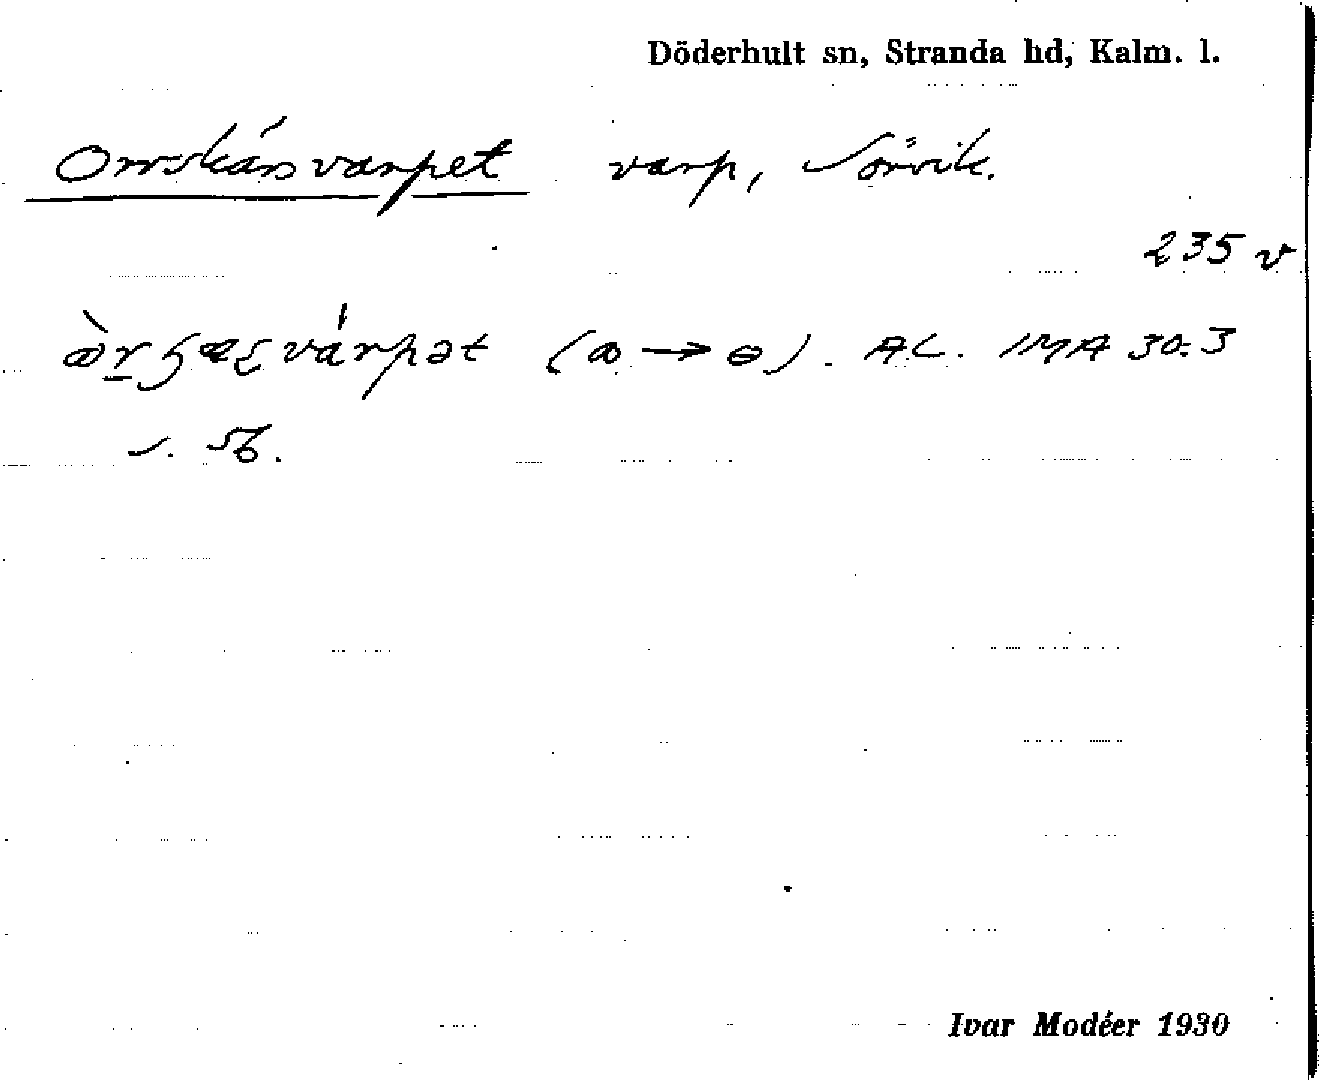 Döderhult sn, Stranda hd, Kalm. l.
Orrskärsvarpet varp, Sörvik.
235 v
(ꝏ → ɵ). A.L. IMA 30:3
s. 56.
Ivar Modéer 1930